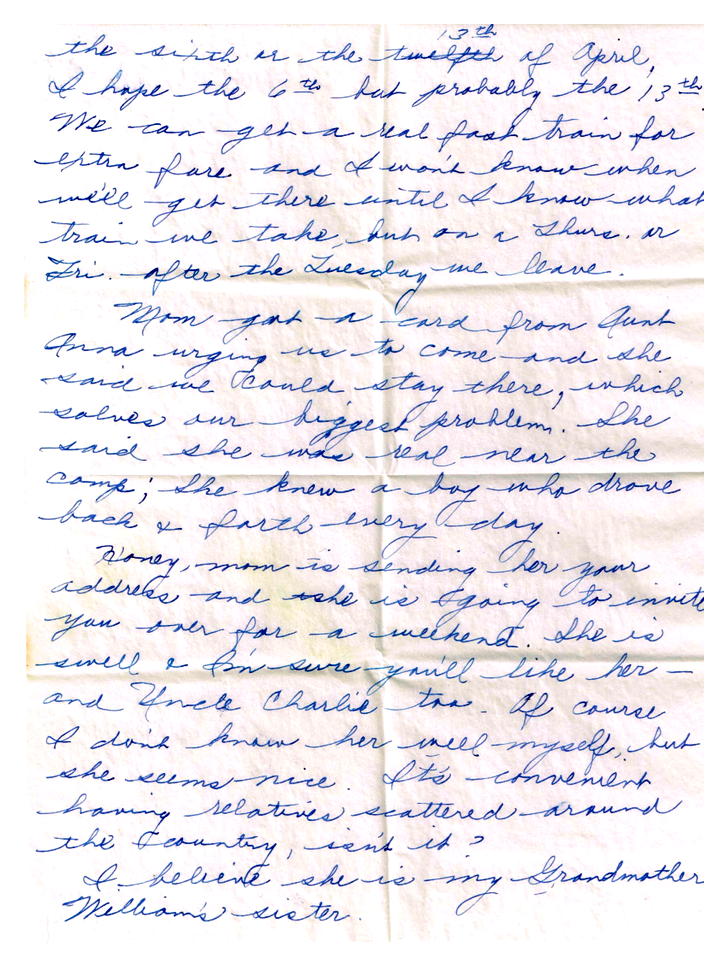 13th
the sixth or the twelfth of April,
I hope the 6th but probably the 13th
We can get a real fast train for
extra fare and I won't know when
we'll get there until I know what
train we take, but on a Thurs. or
Fri. after the Tuesday we leave.
Mom got a card from Aunt
Anna urging us to come and she
said we could stay there, which
solves our biggest problem. She
said she was real near the
camp; She knew a boy who drove
back & forth every day.
Honey, mom is sending her your
address and she is going to invite
you over for a weekend. She is
swell & I'm sure you'll like her —
and Uncle Charlie too. Of course
I don't know her well myself, but
she seems nice. It's convenient
having relatives scattered around
the country, isn't it?
I believe she is my Grandmother
William's sister.